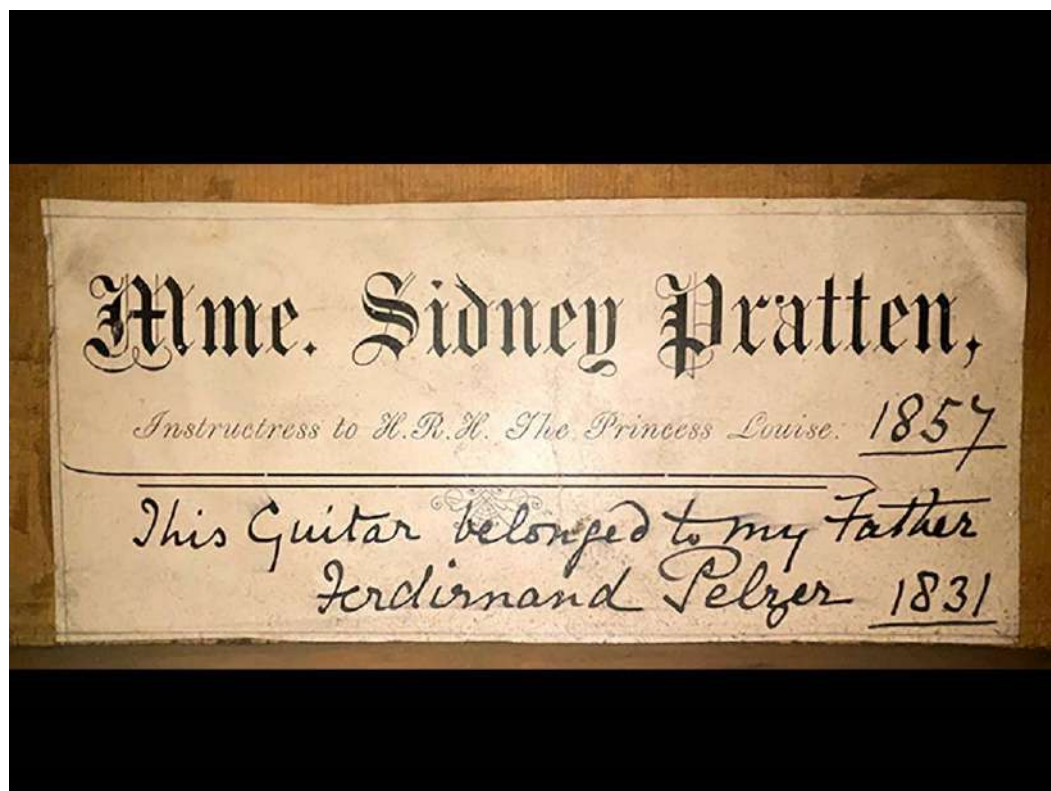 Mme. Sidney Pratten,
Instructress to H.R.H. The Princess Louise. 1857
This Guitar belonged to my Father
Ferdinand Pelzer 1831